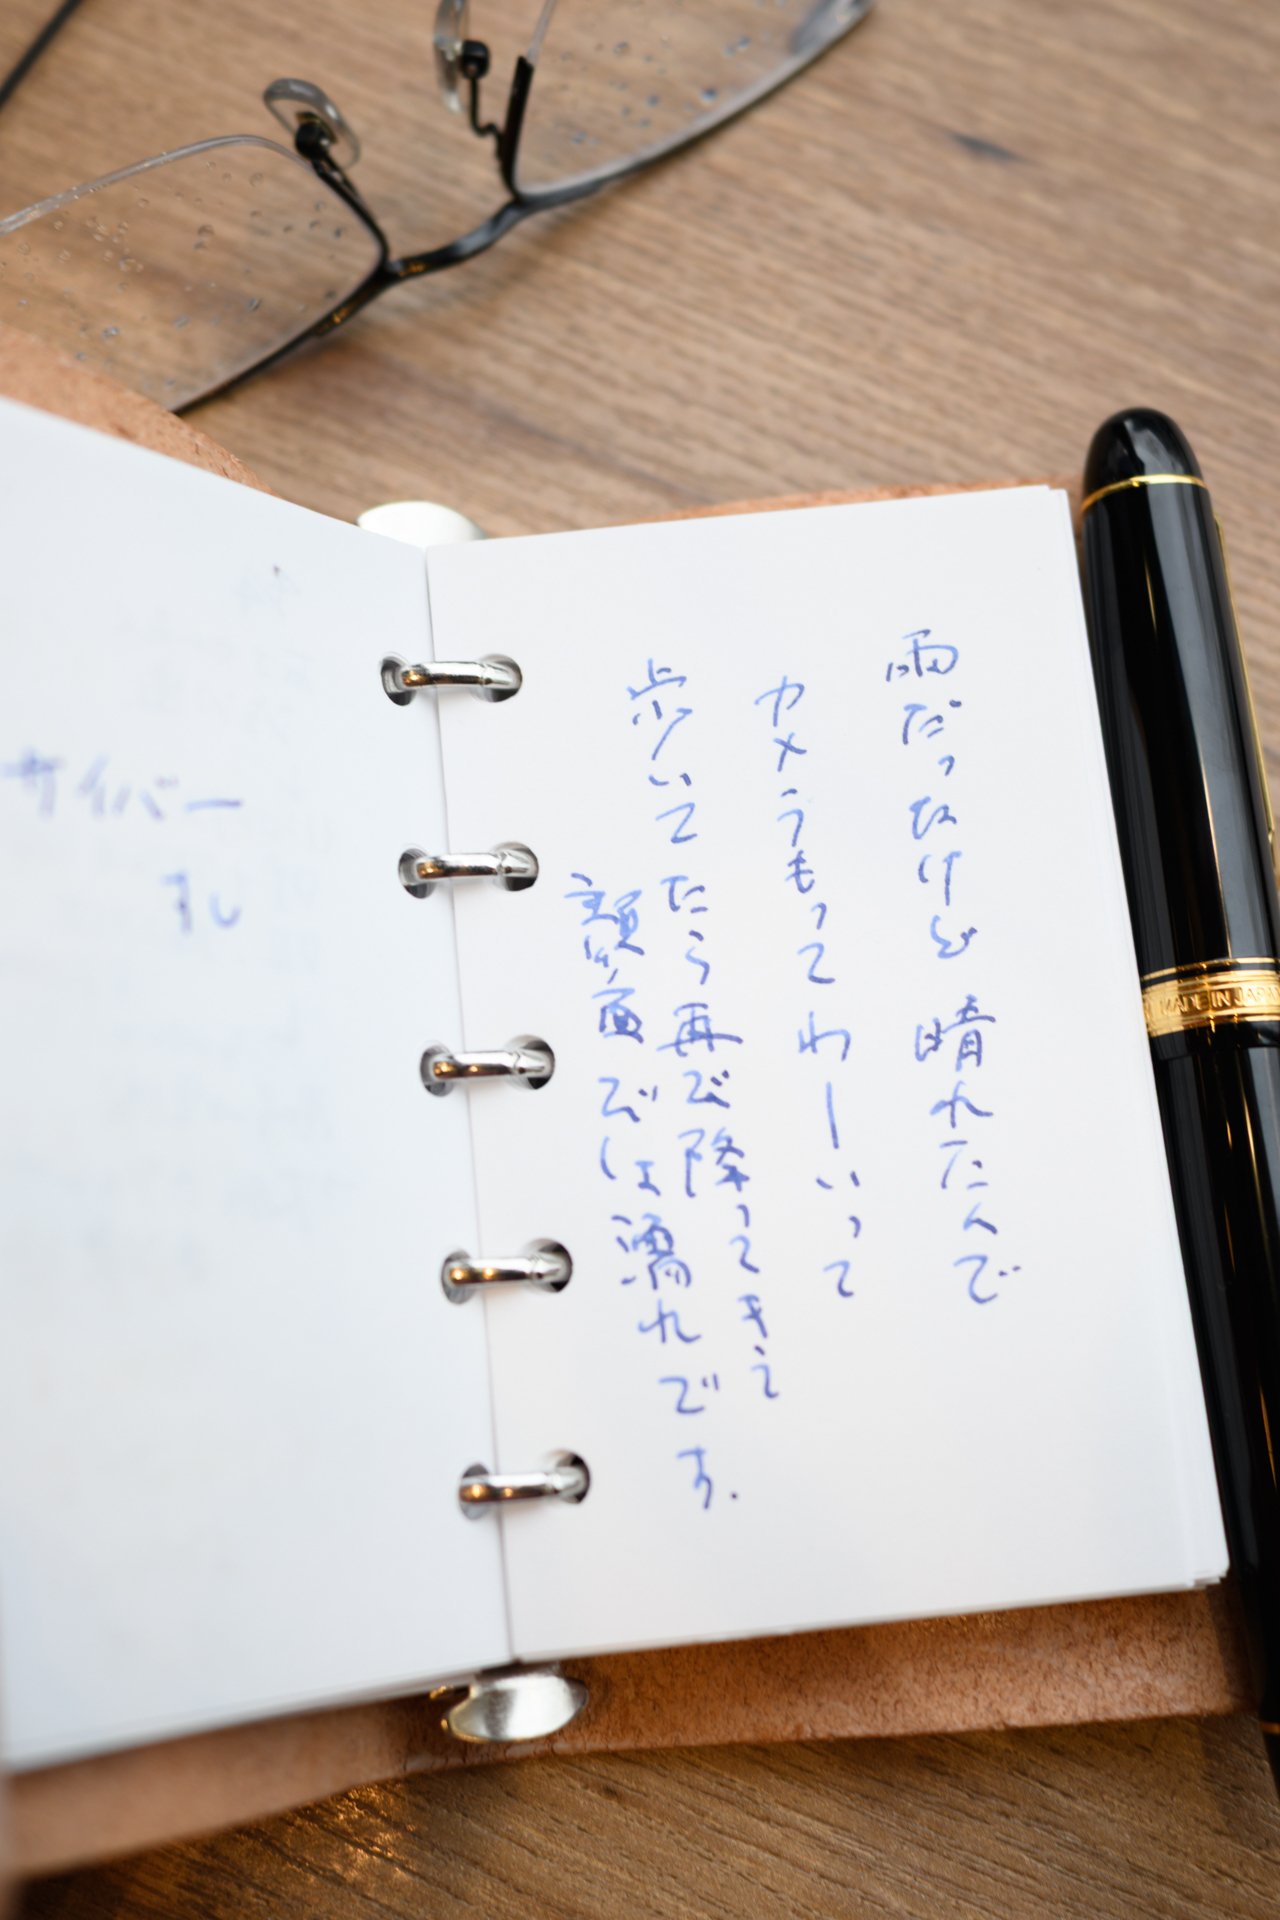 雨だったけど 晴れたんで
カメラもって わーいって
歩いてたら再び降ってきて
顔面では濡れです.
サイバー
すし
MADE IN JAPAN